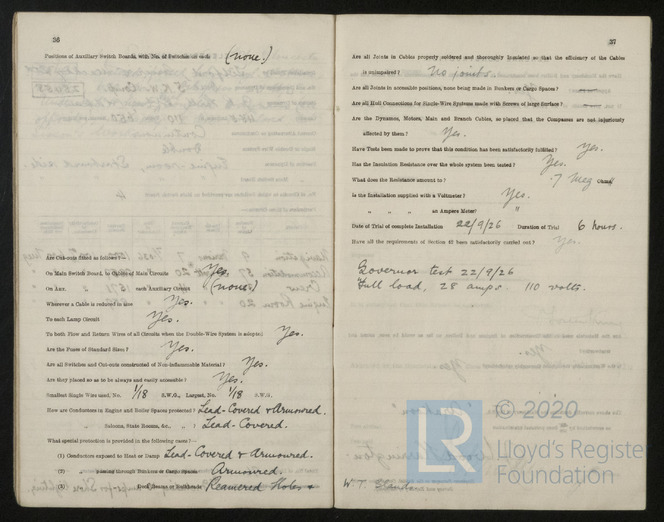 36
Positions of Auxiliary Switch Boards, with No. of Switches on each (none.)
Are Cut-outs fitted as follows?—
On Main Switch Board, to Cables of Main Circuits Yes.
On Aux. " " each Auxiliary Circuit (none.)
Wherever a Cable is reduced in size Yes.
To each Lamp Circuit Yes.
To both Flow and Return Wires of all Circuits when the Double-Wire System is adopted Yes.
Are the Fuses of Standard Sizes? Yes.
Are all Switches and Cut-outs constructed of Non-inflammable Material? Yes.
Are they placed so as to be always and easily accessible? Yes.
Smallest Single Wire used, No. 1/18 S.W.G., Largest, No. 1/18 S.W.G.
How are Conductors in Engine and Boiler Spaces protected? Lead-Covered & Armoured.
" Saloons, State Rooms, &c., " ? Lead-Covered.
What special protection is provided in the following cases?—
(1) Conductors exposed to Heat or Damp Lead-Covered & Armoured.
(2) " passing through Bunkers or Cargo Spaces Armoured.
(3) " " Deck Beams or Bulkheads Reamered Holes &
37
Are all Joints in Cables properly soldered and thoroughly Insulated so that the efficiency of the Cables
is unimpaired? No joints.
Are all Joints in accessible positions, none being made in Bunkers or Cargo Spaces?
Are all Hull Connections for Single-Wire Systems made with Screws of large Surface?
Are the Dynamos, Motors, Main and Branch Cables, so placed that the Compasses are not injuriously
affected by them? Yes.
Have Tests been made to prove that this condition has been satisfactorily fulfilled? Yes.
Has the Insulation Resistance over the whole system been tested? Yes.
What does the Resistance amount to? .7 Meg Ohms
Is the Installation supplied with a Voltmeter? Yes.
" " " an Ampere Meter? "
Date of Trial of complete Installation 22/9/26 Duration of Trial 6 hours.
Have all the requirements of Section 42 been satisfactorily carried out? Yes.
Governor test 22/9/26
Full load, 28 amps. 110 volts.
W.T.
© 2020
LR
Lloyd's Register
Foundation